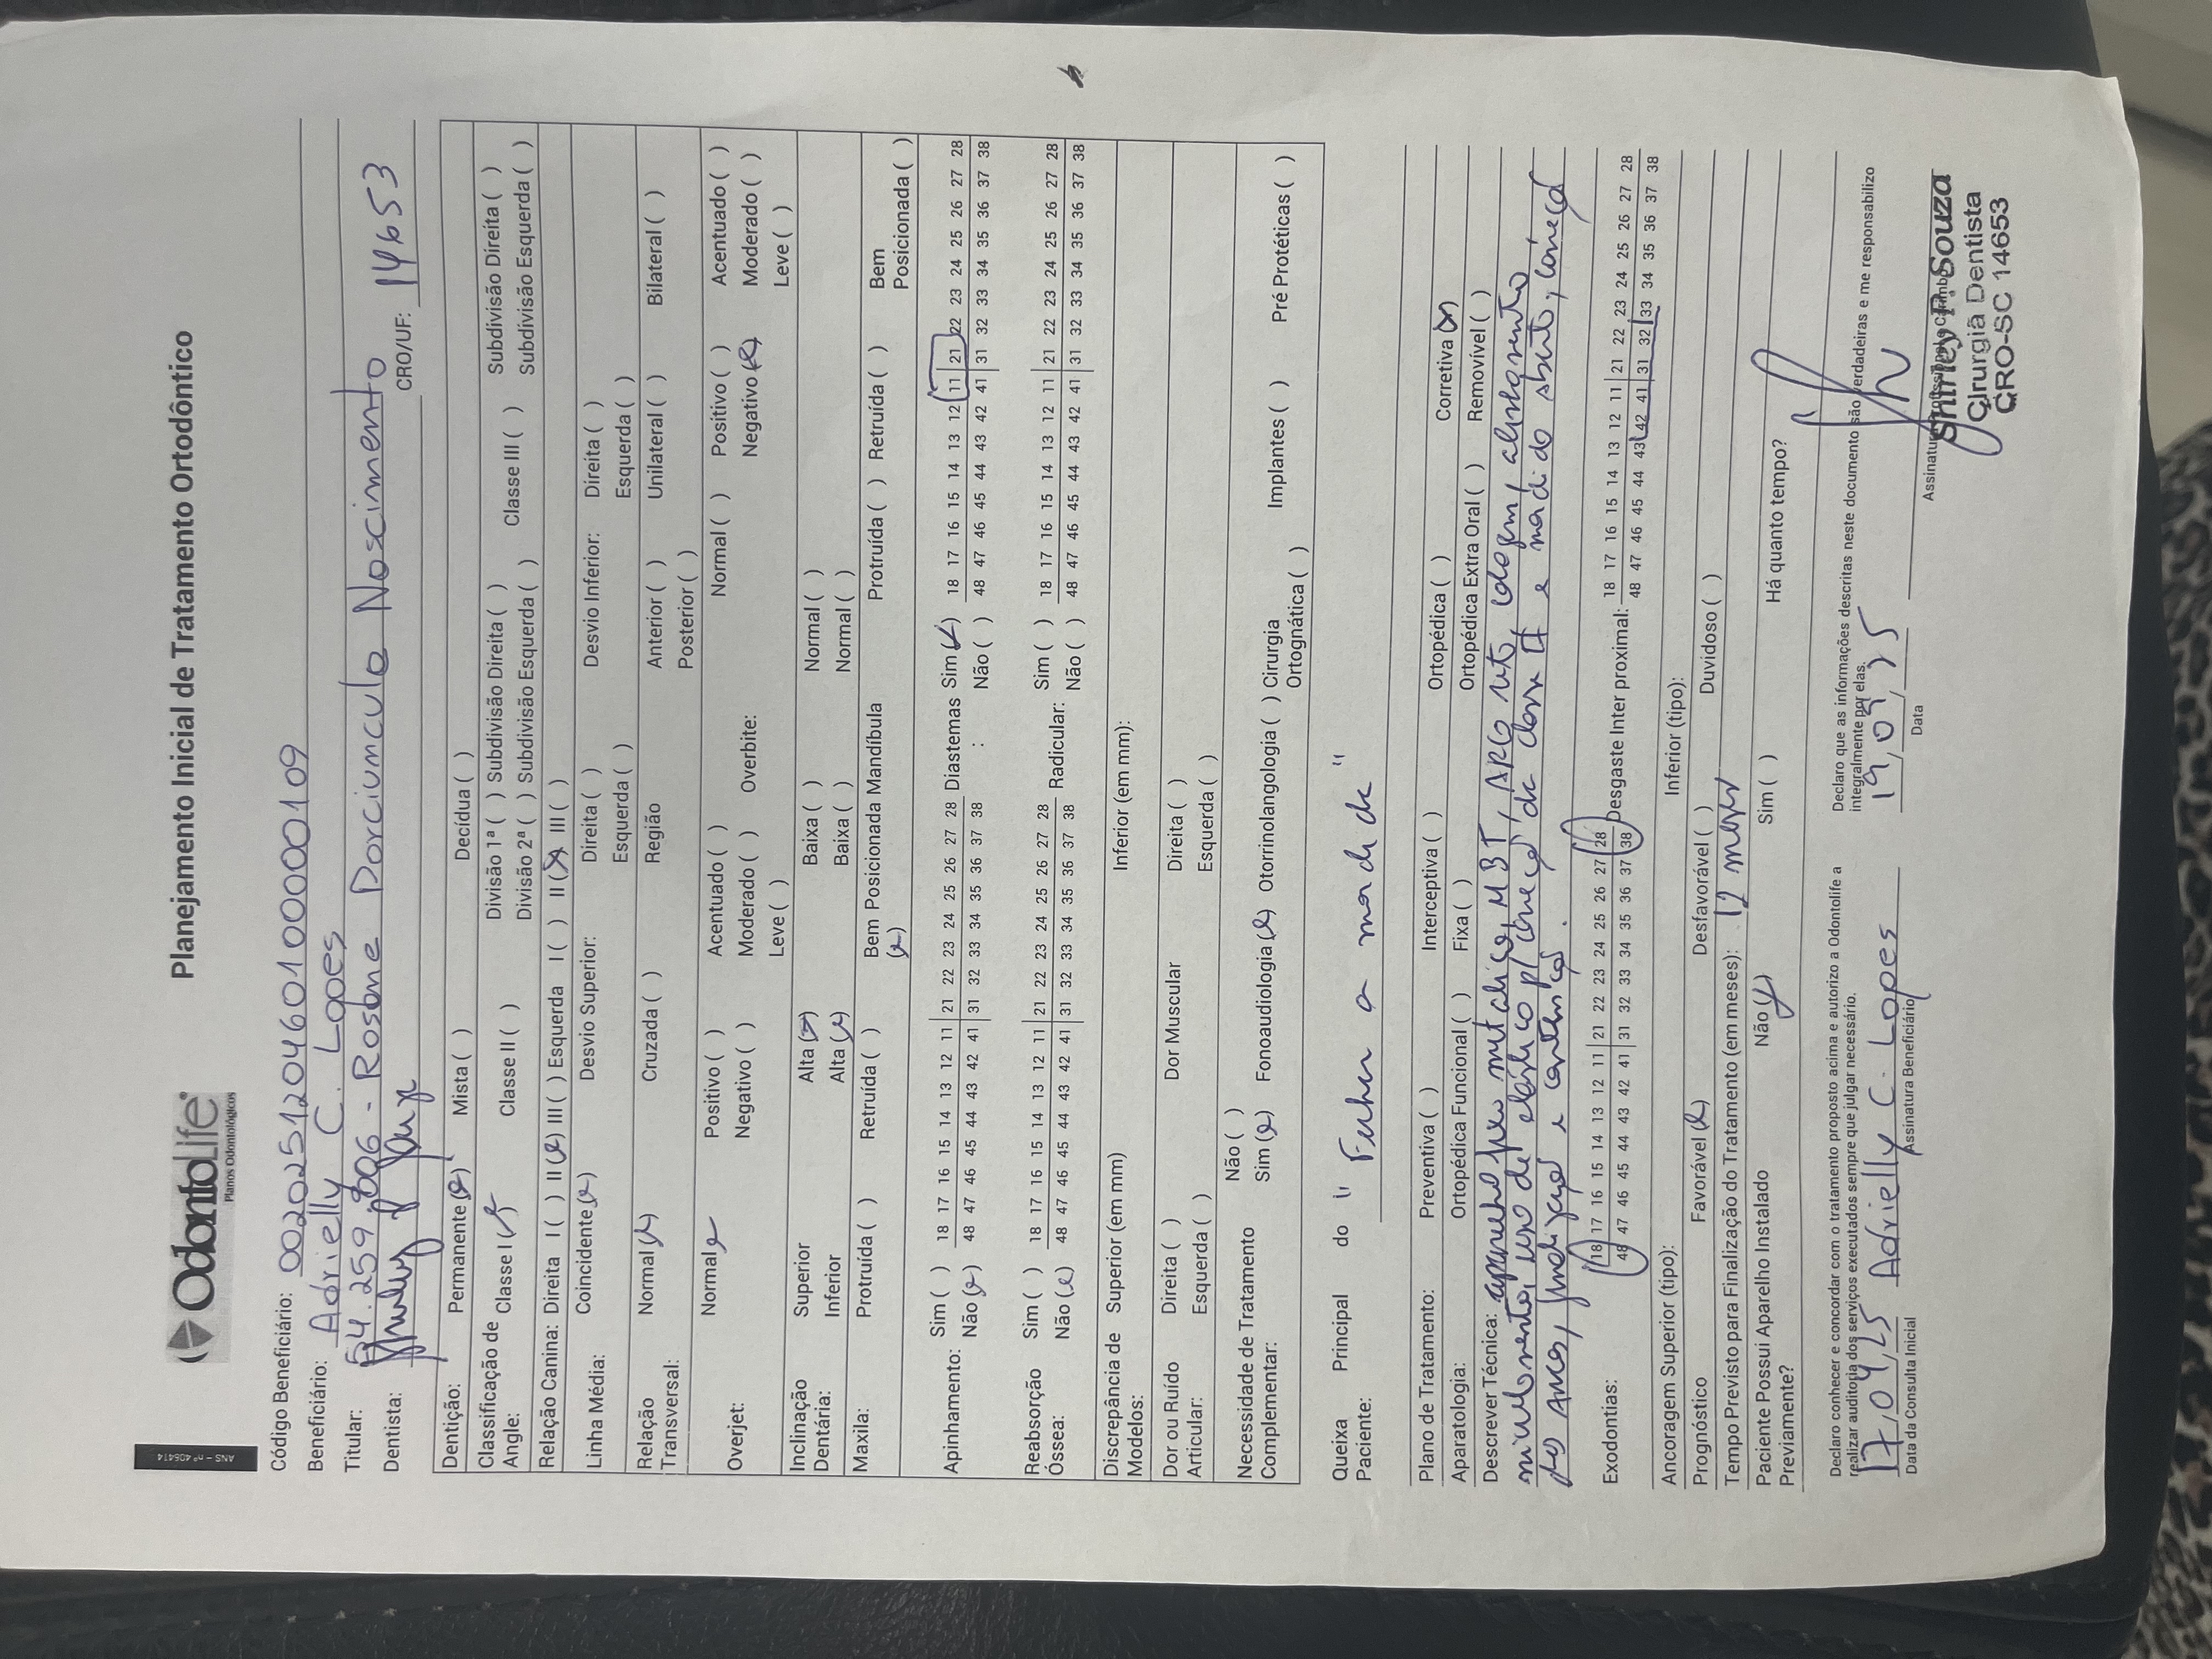 ANS – nº 406414
OdontoLife®
Planos Odontológicos
Planejamento Inicial de Tratamento Ortodôntico
Código Beneficiário: 00202512046010000109
Beneficiário: Adrielly C. Lopes
Titular: 54.259.806 - Rosane Porciuncula Nascimento
Dentista: CRO/UF: 14653
Dentição: Permanente (x) Mista ( ) Decídua ( )
Classificação de Angle: Classe I (x) Classe II ( ) Divisão 1ª ( ) Subdivisão Direita ( ) Classe III ( ) Subdivisão Direita ( )
Divisão 2ª ( ) Subdivisão Esquerda ( ) Subdivisão Esquerda ( )
Relação Canina: Direita I ( ) II (x) III ( ) Esquerda I ( ) II (x) III ( )
Linha Média: Coincidente (x) Desvio Superior: Direita ( ) Desvio Inferior: Direita ( )
Esquerda ( ) Esquerda ( )
Relação Transversal: Normal (x) Cruzada ( ) Região Anterior ( ) Unilateral ( ) Bilateral ( )
Posterior ( )
Overjet: Normal x Positivo ( ) Acentuado ( ) Overbite: Normal ( ) Positivo ( ) Acentuado ( )
Negativo ( ) Moderado ( ) Negativo (x) Moderado ( )
Leve ( ) Leve ( )
Inclinação Dentária: Superior Alta (x) Baixa ( ) Normal ( )
Inferior Alta (x) Baixa ( ) Normal ( )
Maxila: Protruída ( ) Retruída ( ) Bem Posicionada (x) Mandíbula Protruída ( ) Retruída ( ) Bem Posicionada ( )
Apinhamento: Sim ( ) 18 17 16 15 14 13 12 11 21 22 23 24 25 26 27 28 Diastemas : Sim (x) 18 17 16 15 14 13 12 11 21 22 23 24 25 26 27 28
Não (x) 48 47 46 45 44 43 42 41 31 32 33 34 35 36 37 38 Não ( ) 48 47 46 45 44 43 42 41 31 32 33 34 35 36 37 38
Reabsorção Óssea: Sim ( ) 18 17 16 15 14 13 12 11 21 22 23 24 25 26 27 28 Radicular: Sim ( ) 18 17 16 15 14 13 12 11 21 22 23 24 25 26 27 28
Não (x) 48 47 46 45 44 43 42 41 31 32 33 34 35 36 37 38 Não ( ) 48 47 46 45 44 43 42 41 31 32 33 34 35 36 37 38
Discrepância de Modelos: Superior (em mm) Inferior (em mm):
Dor ou Ruído Articular: Direita ( ) Dor Muscular Direita ( )
Esquerda ( ) Esquerda ( )
Necessidade de Tratamento Complementar: Não ( )
Sim (x) Fonoaudiologia (x) Otorrinolangologia ( ) Cirurgia Ortognática ( ) Implantes ( ) Pré Protéticas ( )
Queixa Principal do Paciente: "Fechar a mordida"
Plano de Tratamento: Preventiva ( ) Interceptiva ( ) Ortopédica ( ) Corretiva (x)
Aparatologia: Ortopédica Funcional ( ) Fixa ( ) Ortopédica Extra Oral ( ) Removível ( )
Descrever Técnica: aparelho fixo metálico, MBT, ARG reto, colagem, alinhamento
nivelamento, uso de elástico p/ correção da classe II e mordida aberta, correção
dos Arcos, finalização e contenção.
Exodontias: 18 17 16 15 14 13 12 11 21 22 23 24 25 26 27 28 Desgaste Inter proximal: 18 17 16 15 14 13 12 11 21 22 23 24 25 26 27 28
48 47 46 45 44 43 42 41 31 32 33 34 35 36 37 38 48 47 46 45 44 43 42 41 31 32 33 34 35 36 37 38
Ancoragem Superior (tipo): Inferior (tipo):
Prognóstico Favorável (x) Desfavorável ( ) Duvidoso ( )
Tempo Previsto para Finalização do Tratamento (em meses): 12 meses
Paciente Possui Aparelho Instalado Previamente? Não (x) Sim ( ) Há quanto tempo?
Declaro conhecer e concordar com o tratamento proposto acima e autorizo a Odontolife a
realizar auditoria dos serviços executados sempre que julgar necessário.
17,04,25 Adrielly C. Lopes
Data da Consulta Inicial Assinatura Beneficiário
Declaro que as informações descritas neste documento são verdadeiras e me responsabilizo
integralmente por elas.
Data Assinatura Profissional e Carimbo
Shirley P. Souza
Cirurgiã Dentista
CRO-SC 14653